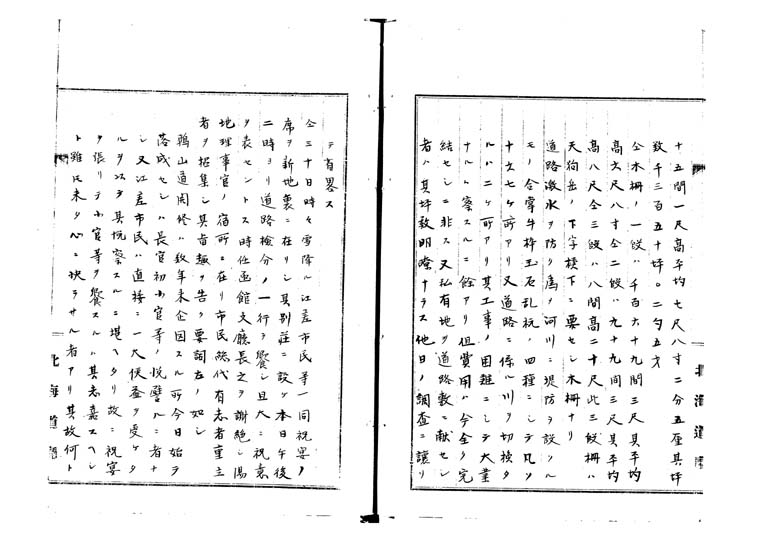 十五間一尺高平均七尺八寸二分五厘其坪
数千三百五十坪〇二勺五才
仝木柵ノ一餃ハ千百六十九間三尺其平均
高六尺八寸仝二餃ハ九十九間三尺其平均
高八尺仝三餃ハ八間高二十尺此三餃柵ハ
天狗岳ノ下字積下ニ要セシ木柵ナリ
道路激水ヲ防ク為メ河川ニ堤防ヲ設クル
モノ合掌牛枠玉石乱杭ノ四種ニシテ凡ソ
十六七ケ所アリ又道路ニ係ル川ヲ切換タ
ルハ二ケ所アリ其工事ノ困難ニシテ大業
ナルト察スルニ餘アリ但費用ハ今全ク完
結セシニ非ス又私有地ヲ道路敷ニ献セシ
者ハ其坪数明瞭ナラス他日ノ調査ニ譲リ
テ省畧ス
仝三十日時々雪降ル江差市民等一同祝宴ノ
席ヲ新地裏ニ在リシ其別荘ニ設ケ本日午後
二時ヨリ道路検分ノ一行ヲ饗シ且大ニ祝意
ヲ表セントス時任函館文廳長之ヲ謝絶シ湯
地理事官ノ宿所ニ在リ市民総代有志者重立
者ヲ招集シ其旨趣ヲ告ク要詞左ノ如シ
鶉山道開修ハ数年来企図スル所今日始テ
落成セシハ長官初小官等ノ悦譬ルニ者ナ
シ又江差市民ハ直接ニ一大侠益ヲ受ケタ
ルヲ以テ其悦察スルニ堪ヘタリ故ニ祝宴
ヲ張リテ小官等ヲ饗スルハ其志嘉スヘシ
ト雖氏未タ心ニ快ラサル者アリ其故何ト
北海道廳